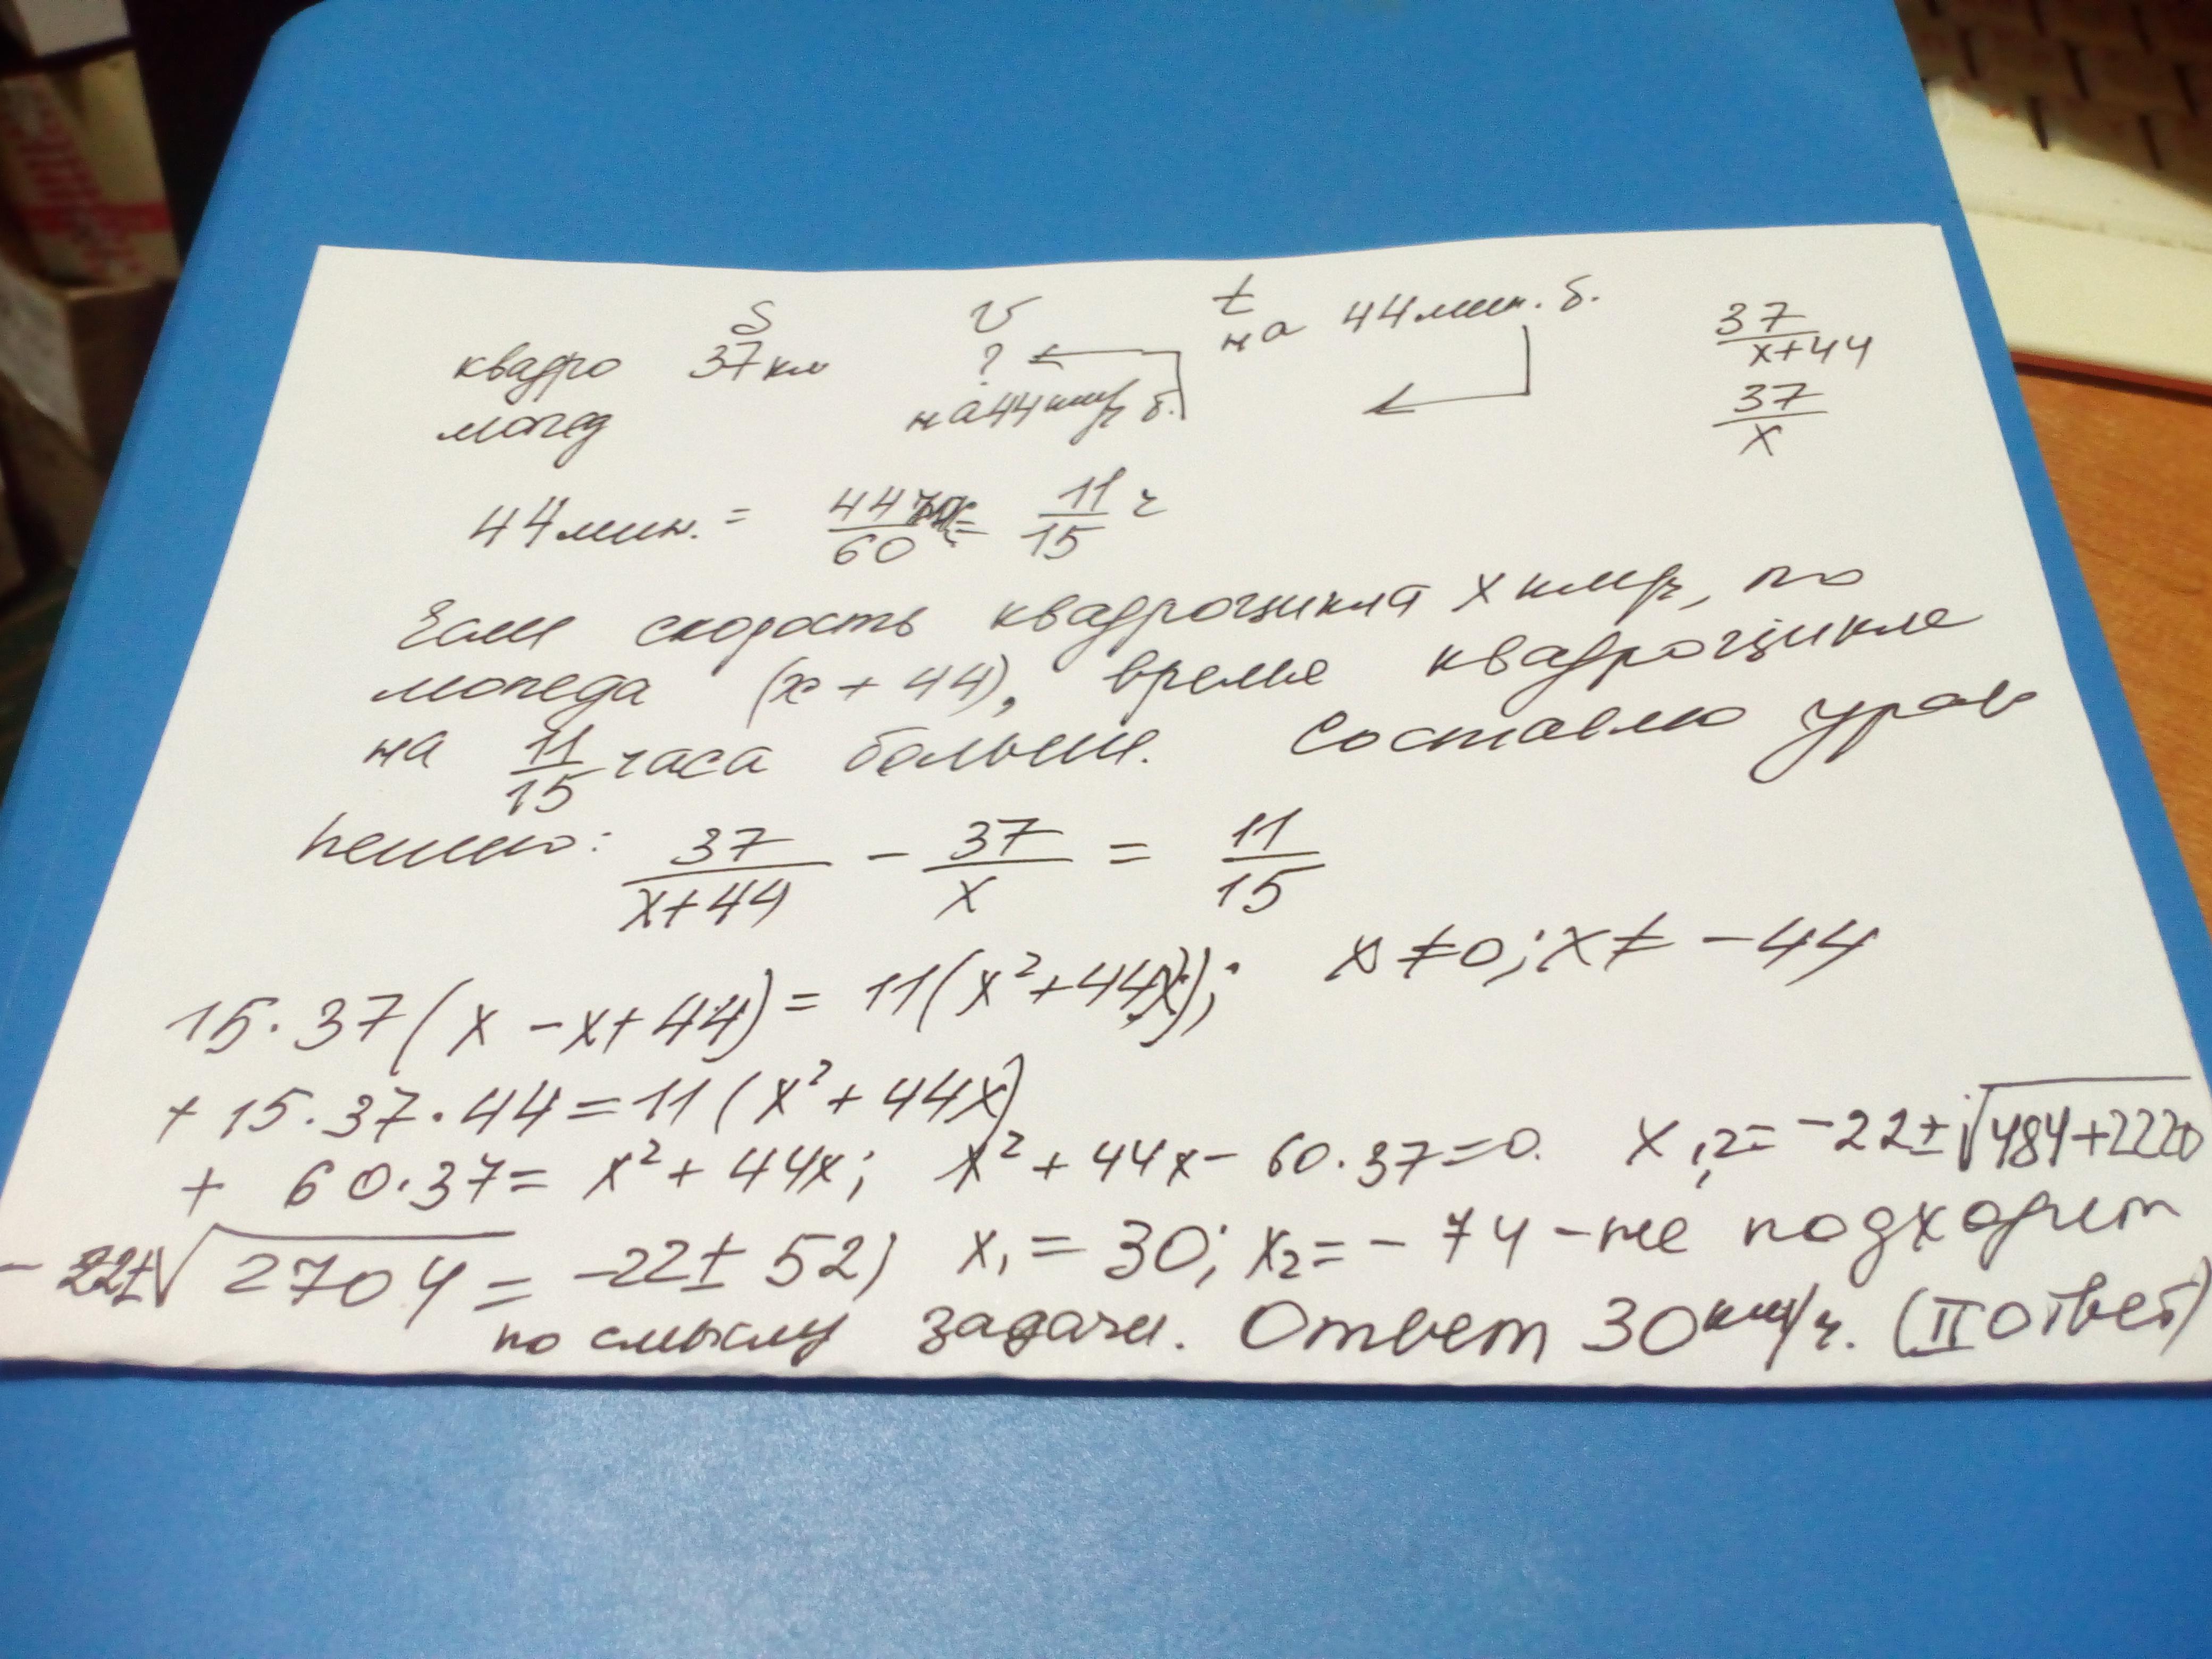 S v t на 44 мин. б. 37/(x+44)
квадро 37 км ? 37/x
мопед на 44 км/ч б.
44 мин. = 44/60 = 11/15 ч
Если скорость квадроцикла x км/ч, то
мопеда (x + 44), время квадроцикла
на 11/15 часа больше. Составлю урав
нение: 37/(x+44) - 37/x = 11/15
15·37(x - x + 44) = 11(x² + 44x); x ≠ 0; x ≠ -44
+ 15·37·44 = 11(x² + 44x)
+ 60·37 = x² + 44x; x² + 44x - 60·37 = 0. x₁,₂ = -22 ± √(484+2220
-22 ± √2704 = -22 ± 52; x₁ = 30; x₂ = -74 - не подходит
по смыслу задачи. Ответ 30 км/ч. (II ответ)